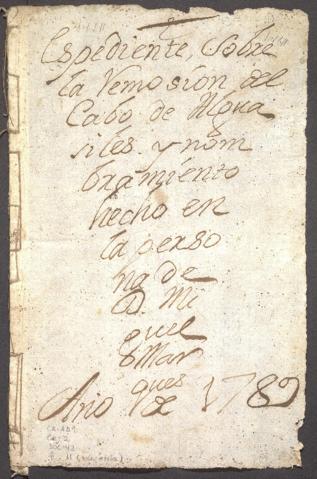 Espediente, Sobre
la Remosion del
Cabo de Algua
siles y nom
bramiento
hecho en
la perso
na de
D. Mi
guel
Mar
ques
Año de 1789